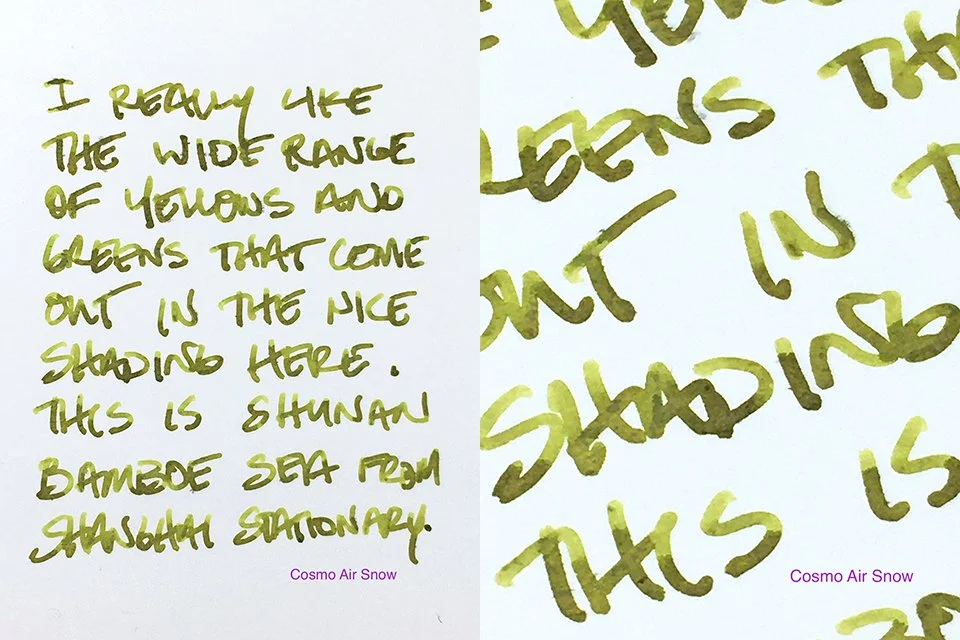 I REALLY LIKE
THE WIDE RANGE
OF YELLOWS AND
GREENS THAT COME
OUT IN THE NICE
SHADING HERE.
THIS IS SHUNAN
BAMBOE SEA FROM
SHANGHAI STATIONARY.
Cosmo Air Snow
YELLOWS
GREENS THA
OUT IN T
SHADING
THIS IS
Cosmo Air Snow